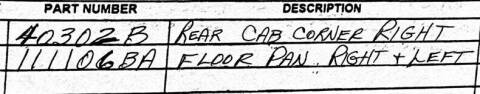 PART NUMBER DESCRIPTION
40302B REAR CAB CORNER RIGHT
111106BA FLOOR PAN. RIGHT + LEFT